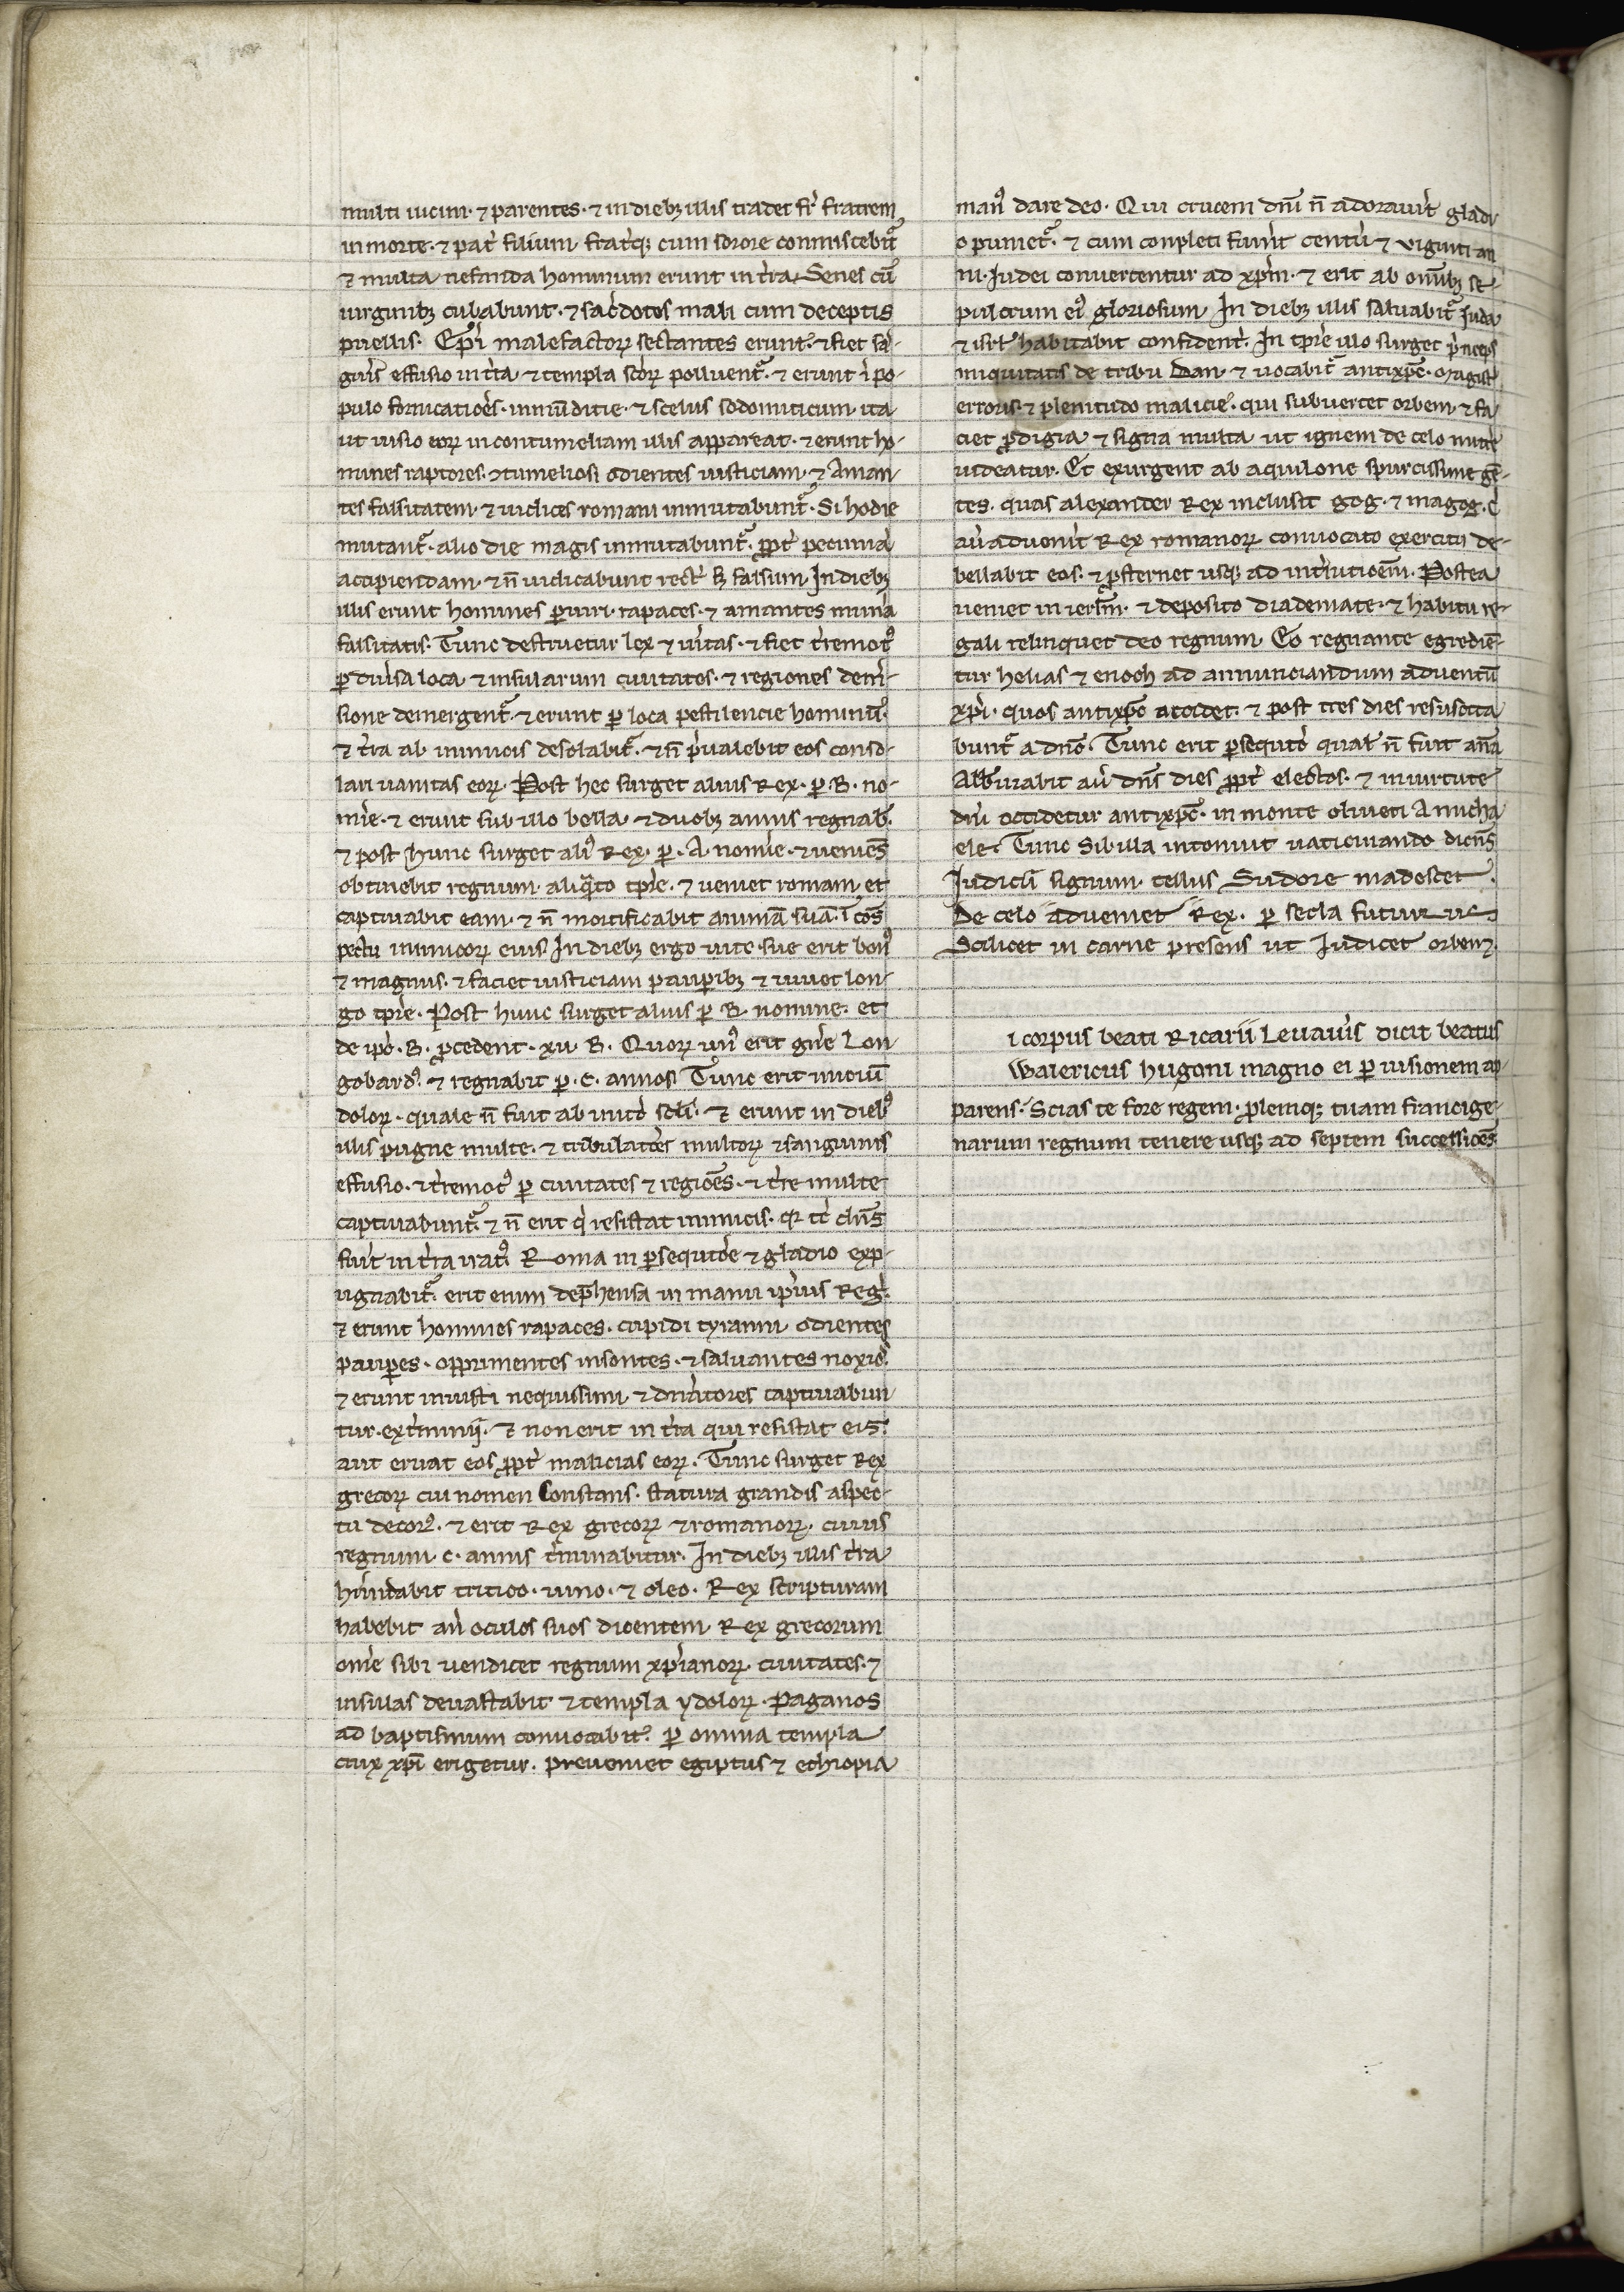 multi uicini· ⁊ parentes· ⁊ in dieb; illis tradet fr̄ fratrem
in morte· ⁊ pat̄ filium fratq; cum sorore commiscebit᷑
⁊ multa nefanda hominum erunt in t̄ra Senes cū
uirginib; cubabunt· ⁊ sac̄dotes mali cum deceptis
puellis· Ep̄i malefactoꝝ sectantes erunt· ⁊ fiet sā-
guīs effusio in t̄ra ⁊ templa sc̄oꝝ polluent᷑· ⁊ erunt ī po-
pulo fornicatiōēs· inmūditie· ⁊ scelus sodomiticum ita
ut uisio eoꝝ in contumeliam illis appareat· ⁊ erunt ho-
mines raptores· ꝯtumeliosi odientes iusticiam· ⁊ Aman-
tes falsitatem· ⁊ iudices romani inmutabunt᷑· Si hodie
mutant᷑· alio die magis inmutabunt᷑· ꝓpt̄ pecuniā
accipiendam· ⁊ n̄ iudicabunt rect̄ sꝫ falsum In dieb;
illis erunt homines ꝑiuri· rapaces· ⁊ amantes munā
falsitatis· Tunc destruetur lex ⁊ ūitas· ⁊ fiet t̄remotꝰ
ꝑ diūsa loca ⁊ insularum ciuitates· ⁊ regiones dem̄-
sione demergent᷑· ⁊ erunt ꝑ loca pestilencie hominū·
⁊ t̄ra ab inimicis desolabit᷑· ⁊ n̄ p̄ualebit eos conso-
lari uanitas eoꝝ· Post hec surget alius Rex· ꝑ· B· no-
mīe· ⁊ erunt sub illo bella ⁊ duob; annis regnab̄·
⁊ post hunc surget aliꝰ Rex· ꝑ· A· nomīe· ⁊ ueniēs
obtinebit regnum aliqͣto tp̄re· ⁊ ueniet romam et
captiuabit eam· ⁊ n̄ mortificabit animā suā· ī cōs
pectu inimicoꝝ eius· In dieb; ergo uite sue erit bonꝰ
⁊ magnus· ⁊ faciet iusticiam pauꝑib; ⁊ uiuet lon-
go tp̄re· Post hunc surget alius ꝑ B· nomine· et
de ip̄o· B· ꝓcedent· xii· B· Quoꝝ unꝰ erit gn̄e Lon
gobardꝰ· ⁊ regnabit ꝑ· C· annos· Tūc erit iniciū
doloꝝ· quale n̄ fuit ab inito sc̄li· ⁊ erunt in diebꝰ
illis pugne multe· ⁊ tribulatōēs multoꝝ ⁊ sanguinis
effusio· ⁊ t̄remotꝰ ꝑ ciuitates ⁊ regiōēs· ⁊ t̄re multe
captiuabunt᷑ ⁊ n̄ erit q̇ resistat inimicis· qꝛ tc̄ dn̄s
fūit in t̄ra iratꝰ· Roma in ꝑsequtōe ⁊ gladio exp-
ugnabit᷑· erit enim dep̄hensa in manu ipsius Reḡ·
⁊ erunt homines rapaces· cupidi tyranni odientes
pauꝑes· opprimentes insontes· ⁊ saluantes noxiō·
⁊ erunt iniusti nequissimi ⁊ dn̄atores captiuabun
tur· ext̄minij· ⁊ non erit in t̄ra qui resistat eis·
aut eruat eos ꝓpt̄ malicias eoꝝ· Tunc surget Rex
grecoꝝ cui nomen Constans· statura grandis aspec-
tu decorꝰ· ⁊ erit Rex grecoꝝ ⁊ romanoꝝ· cuius
regnum c· annis t̄minabitur· In dieb; illis t̄ra
hūndabit tritico· uino· ⁊ oleo· Rex scripturam
habebit an̄ oculos suos dicentem· Rex grecorum
om̄e sibi uendicet regnum xp̄ianoꝝ· ciuitates· ⁊
insulas deuastabit ⁊ templa ydoloꝝ· Paganos
ad baptismum conuocabit· ꝑ omnia templa
crux xp̄i erigetur· preueniet egiptus ⁊ ethiopia
manꝰ dare deo· Qui crucem dn̄i n̄ adorauīt gladi
o puniet᷑· ⁊ cum conpleti fūint centū ⁊ viginti an
ni· Iudei conuertentur ad xp̄m· ⁊ erit ab om̄ib; se-
pulcrum eiꝰ gloriosum In dieb; illis saluabit᷑ Iuda
⁊ isrl̄ habitabit confident̄· In tp̄re illo surget p̄nceps
iniquitatis de tribu Dan· ⁊ uocabit᷑ antixp̄c· Magist̄
erroris· ⁊ plenitudo malicie· qui subuertet orbem· ⁊ fa
ciet ꝓdigia ⁊ signa multa ut ignem de celo mitte
uideatur· Et exurgent ab aquilone spurcissime gē-
tes· quas alexander Rex inclusit gog· ⁊ magog· C
aū adueūit Rex romanoꝝ conuocato exercitu de-
bellabit eos· ⁊ ꝓsternet usq; ad int̄nitiōēm· Postea
ueniet in ierl̄m· ⁊ deposito diademate· ⁊ habitu re-
gali relinquet deo regnum· Eo regnante egrediē-
tur helias ⁊ enoch ad annunciandum aduentū
xp̄i· quos antixp̄c occidet· ⁊ post tres dies resuscita
bunt᷑ a dn̄o· Tunc erit ꝑsequtō qual̄ n̄ fuit an̄a
Abbreuiabit aū dn̄s dies ꝓpt̄ electos· ⁊ in uirtute
dn̄i occidetur antixp̄c· in monte oliueti A micha
ele· Tunc Sibilla intonuit uaticinando dicn̄s
Iudicii signum tellus Sudore madescet·
De celo adueniet Rex· ꝑ secla futurus
Scilicet in carne presens ut Iudicet orbem·
i corpus beati Ricarii Leuauis dicit beatus
Walericus hugoni magno ei ꝑ uisionem ap-
parens· Scias te fore regem· ꝓlemq; tuam francige-
narum regnum tenere usq; ad septem successiōēs·